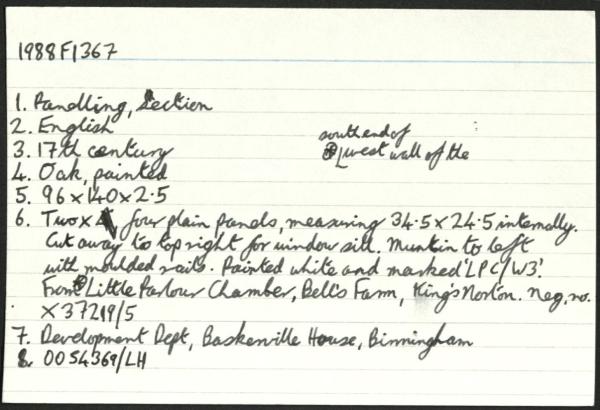 1988F1367
1. Panelling, Section
2. English
3. 17th century
south end of
west wall of the
4. Oak, painted
5. 96 x 140 x 2.5
6. Two x four plain panels, measuring 34.5 x 24.5 internally.
Cut away to top right for window sill. Muntin to left
with moulded rails. Painted white and marked 'LPC/W3'.
From Little Parlour Chamber, Bell's Farm, King's Norton. Neg. no.
X37219/5
7. Development Dept, Baskerville House, Birmingham
8. 0054369/LH